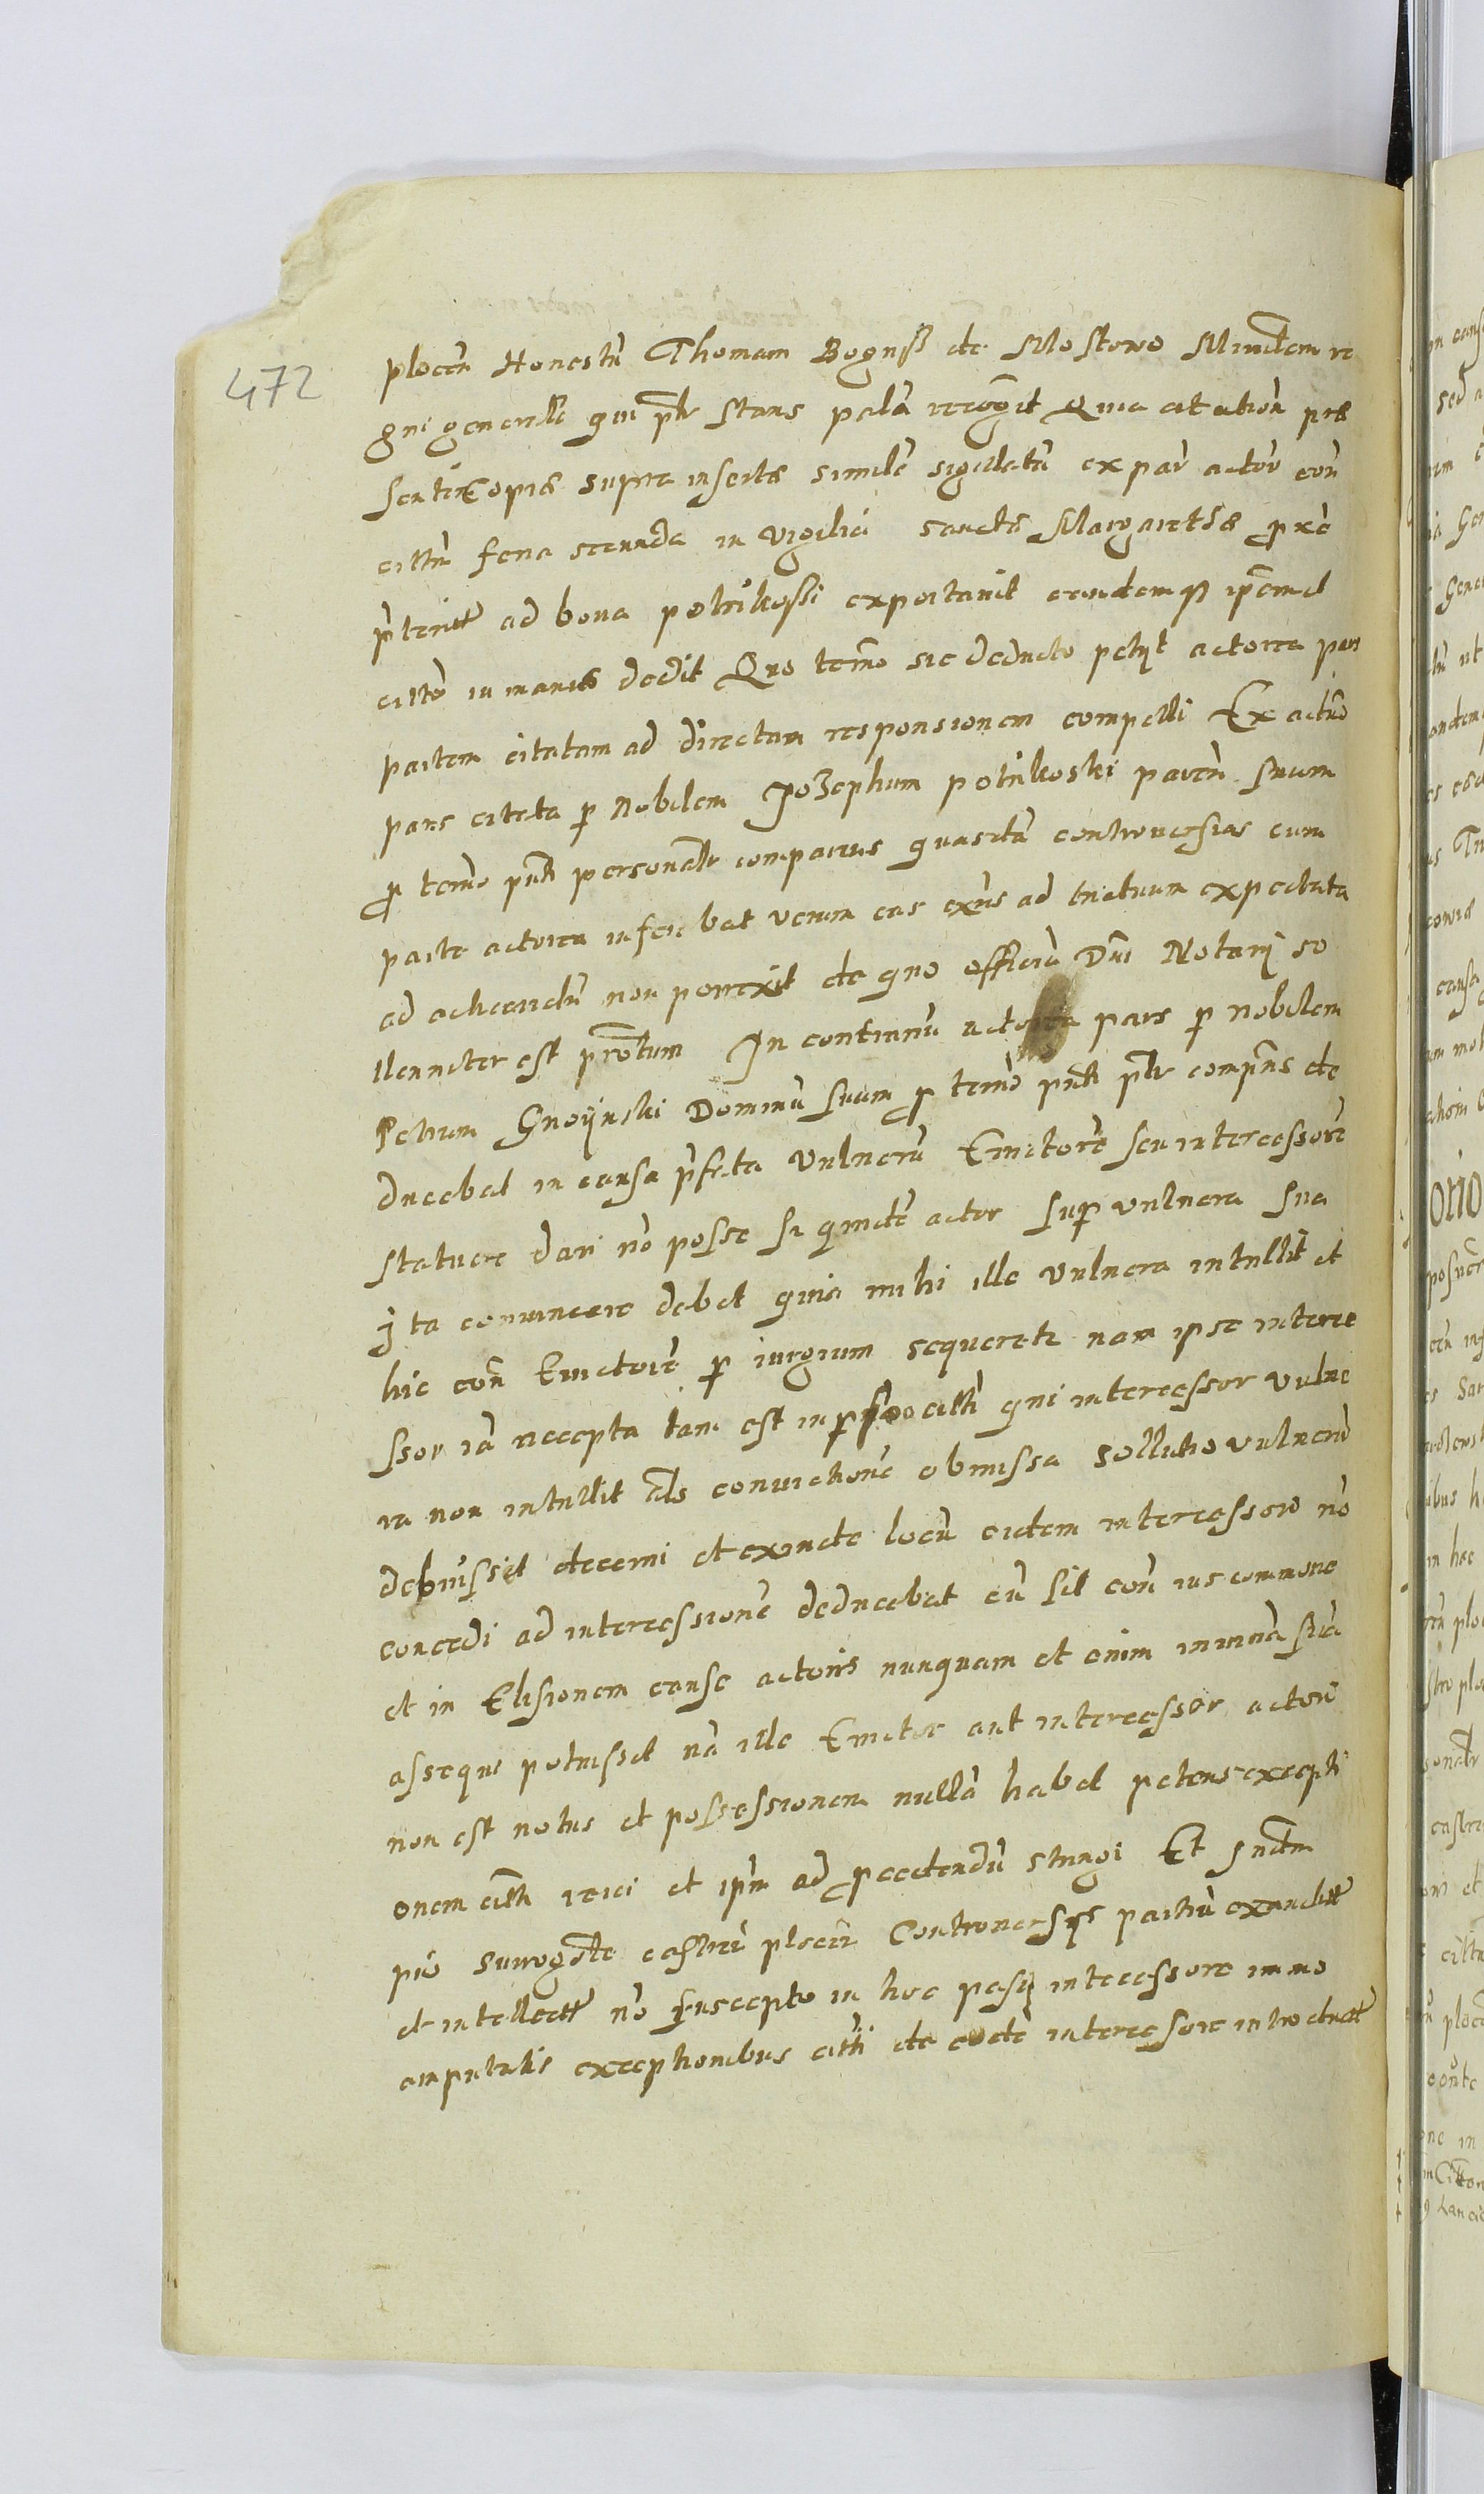 472
plocen Honestu Thomam Boguss de Mostowo Ministem re
gni generale qui pntr stans palã recogñit Quia citation pre
senti Copia supra inserta simile sigillatã ex par actor con
cittũ feria secunda in vigilia sancte Margarethe prox
preterite ad bona potrikossi exportavit eandemq ipsemet
citto in manus dedit Quo termo sic deducto petijt actorea pars
partem citatam ad directam responsionem compelli Ex adũso
pars citata p Nobilem Jozephum potrikoski paren suum
p termo pnti personalr comparens quasdã controversias cum
parte actorea inferebat verum eas exnis ad triduum expectata
ad acticandũ non porrexit de quo officiũ Dni Notarij so
llenniter est protestum In continuũ actorea pars p nobilem
Petrum Gnoijnski Dominũ suum p termo pnti pntr compñs de
ducebat in causa prefata vulnerũ Evictorẽ seu intercessorẽ
statuere dari nõ posse si quidẽ actor sup vulnera sua
Jta convincere debet quia mihi ille vulnera intullit et
hic con Evictorẽ p iurgium sequerete nam ipse interce
ssor iã recepta tam est in pso citti qui intercessor vulne
ra non intullit als convictionẽ obmissa sollutio vulnerũ
debuisset decerni et exinde locũ eidem intercessori nõ
concedi ad intercessionẽ deducebat cũ sit con ius commone
et in Elisionem cause actoris nunquam et enim iniuriã suã
assequi potuisset nã ille Evictor aut intercessor actori
non est notus et possessionem nullã habet petens excepti
onem citti reici et ipm ad procedendũ stringi Et Judm
piũ surrogate castren plocen Controversijs partiũ exauditis
et intellectis nõ suscepto in hoc passu intercessore immo
amputatis exceptionibus citti de eodẽ intercessore introductis